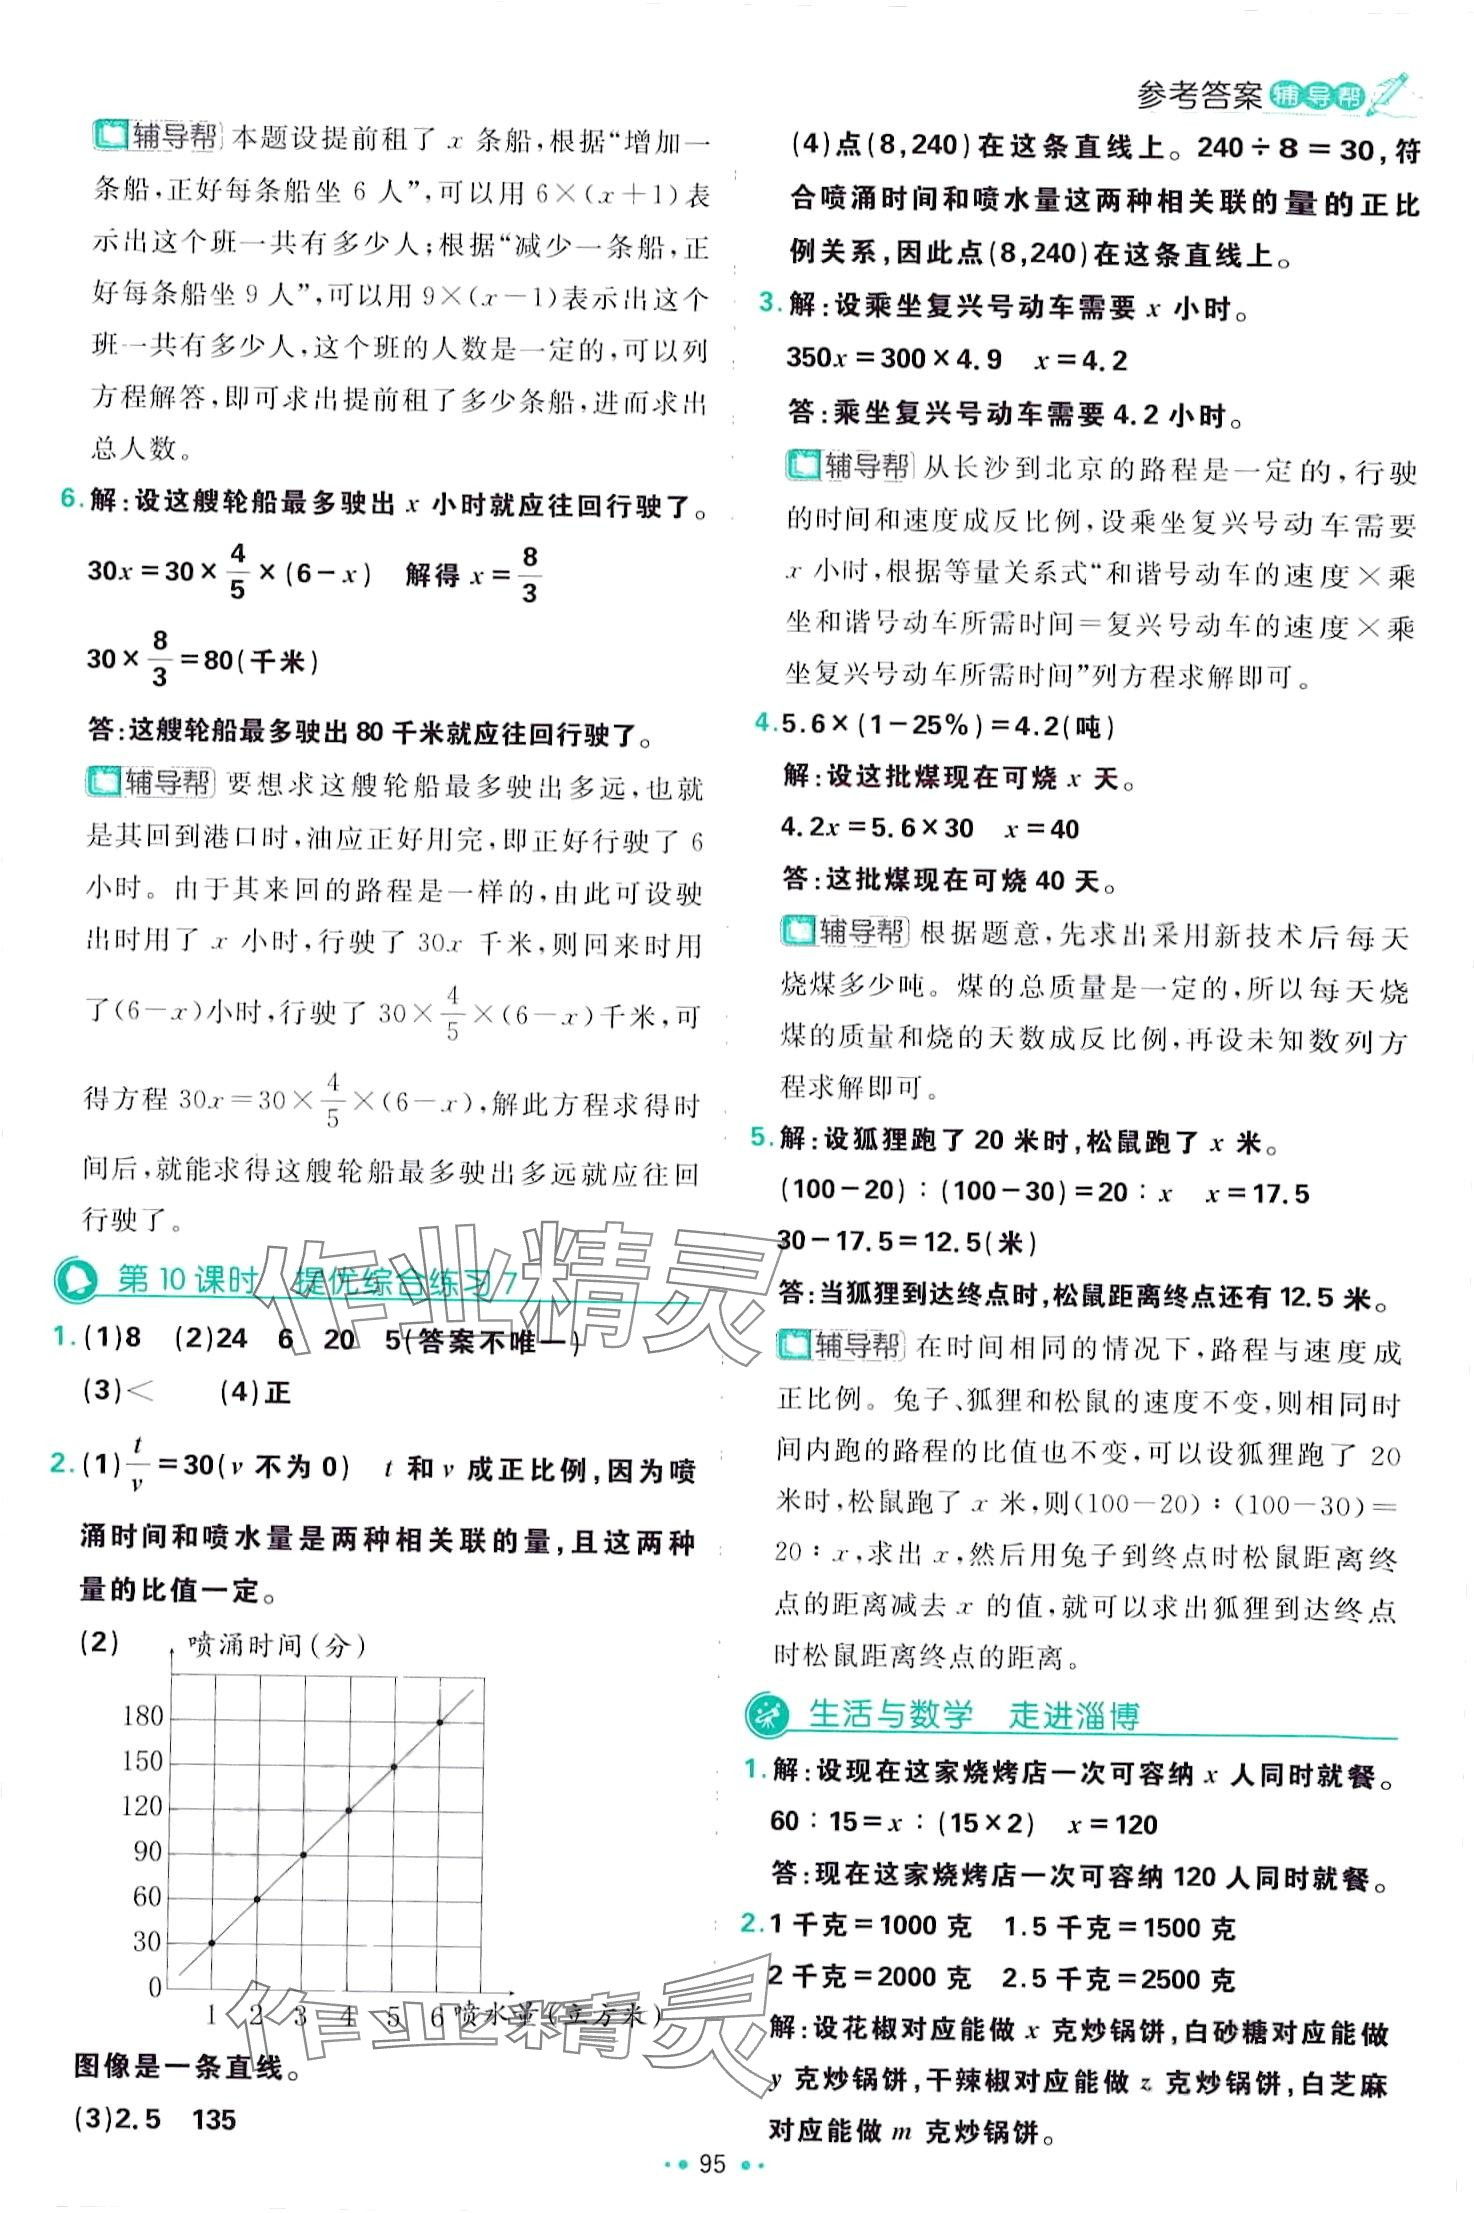 参考答案 辅导帮
辅导帮 本题设提前租了 x 条船,根据“增加一
条船,正好每条船坐 6 人”,可以用 6×(x+1)表
示出这个班一共有多少人;根据“减少一条船,正
好每条船坐 9 人”,可以用 9×(x-1)表示出这个
班一共有多少人,这个班的人数是一定的,可以列
方程解答,即可求出提前租了多少条船,进而求出
总人数。
6. 解:设这艘轮船最多驶出 x 小时就应往回行驶了。
30x=30×4/5×(6-x) 解得 x=8/3
30×8/3=80(千米)
答:这艘轮船最多驶出 80 千米就应往回行驶了。
辅导帮 要想求这艘轮船最多驶出多远,也就
是其回到港口时,油应正好用完,即正好行驶了 6
小时。由于其来回的路程是一样的,由此可设驶
出时用了 x 小时,行驶了 30x 千米,则回来时用
了(6-x)小时,行驶了 30×4/5×(6-x)千米,可
得方程 30x=30×4/5×(6-x),解此方程求得时
间后,就能求得这艘轮船最多驶出多远就应往回
行驶了。
第 10 课时 提优综合练习 7
1. (1)8 (2)24 6 20 5(答案不唯一)
(3)< (4)正
2. (1)t/v=30(v 不为 0) t 和 v 成正比例,因为喷
涌时间和喷水量是两种相关联的量,且这两种
量的比值一定。
(2) 喷涌时间(分)
180
150
120
90
60
30
0
1 2 3 4 5 6 喷水量(立方米)
图像是一条直线。
(3)2.5 135
(4)点(8,240)在这条直线上。240÷8=30,符
合喷涌时间和喷水量这两种相关联的量的正比
例关系,因此点(8,240)在这条直线上。
3. 解:设乘坐复兴号动车需要 x 小时。
350x=300×4.9 x=4.2
答:乘坐复兴号动车需要 4.2 小时。
辅导帮 从长沙到北京的路程是一定的,行驶
的时间和速度成反比例,设乘坐复兴号动车需要
x 小时,根据等量关系式“和谐号动车的速度×乘
坐和谐号动车所需时间=复兴号动车的速度×乘
坐复兴号动车所需时间”列方程求解即可。
4. 5.6×(1-25%)=4.2(吨)
解:设这批煤现在可烧 x 天。
4.2x=5.6×30 x=40
答:这批煤现在可烧 40 天。
辅导帮 根据题意,先求出采用新技术后每天
烧煤多少吨。煤的总质量是一定的,所以每天烧
煤的质量和烧的天数成反比例,再设未知数列方
程求解即可。
5. 解:设狐狸跑了 20 米时,松鼠跑了 x 米。
(100-20)∶(100-30)=20∶x x=17.5
30-17.5=12.5(米)
答:当狐狸到达终点时,松鼠距离终点还有 12.5 米。
辅导帮 在时间相同的情况下,路程与速度成
正比例。兔子、狐狸和松鼠的速度不变,则相同时
间内跑的路程的比值也不变,可以设狐狸跑了 20
米时,松鼠跑了 x 米,则(100-20)∶(100-30)=
20∶x,求出 x,然后用兔子到终点时松鼠距离终
点的距离减去 x 的值,就可以求出狐狸到达终点
时松鼠距离终点的距离。
生活与数学 走进淄博
1. 解:设现在这家烧烤店一次可容纳 x 人同时就餐。
60∶15=x∶(15×2) x=120
答:现在这家烧烤店一次可容纳 120 人同时就餐。
2. 1 千克=1000 克 1.5 千克=1500 克
2 千克=2000 克 2.5 千克=2500 克
解:设花椒对应能做 x 克炒锅饼,白砂糖对应能做
y 克炒锅饼,干辣椒对应能做 z 克炒锅饼,白芝麻
对应能做 m 克炒锅饼。
95
作业精灵
作业精灵